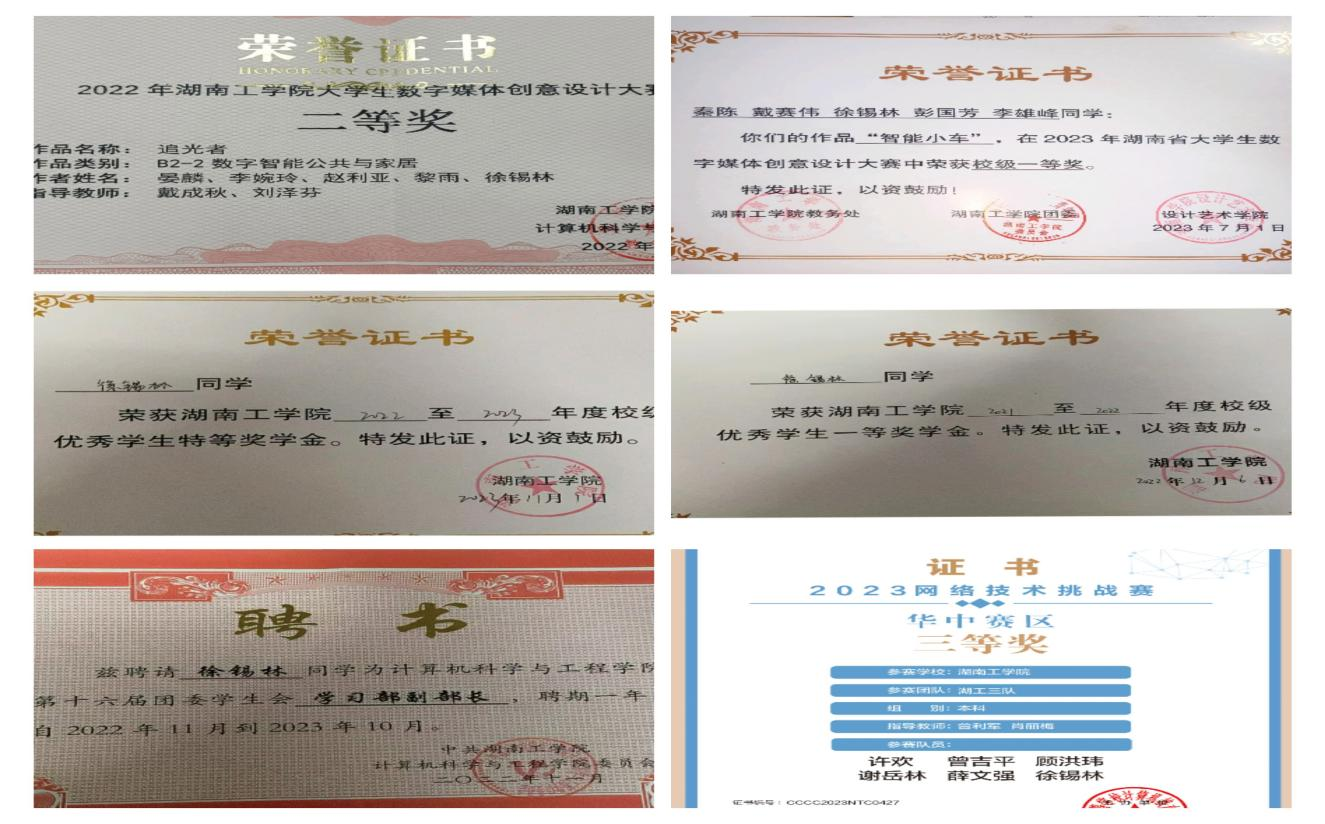 荣誉证书
HONORARY CREDENTIAL
2022 年湖南工学院大学生数字媒体创意设计大赛
二等奖
作品名称： 追光者
作品类别： B2-2 数字智能公共与家居
作者姓名： 晏麟、李婉玲、赵利亚、黎雨、徐锡林
指导教师： 戴成秋、刘泽芬
湖南工学院
计算机科学与
2022 年
荣誉证书
秦陈 戴赛伟 徐锡林 彭国芳 李雄峰同学：
你们的作品“智能小车”，在 2023 年湖南省大学生数
字媒体创意设计大赛中荣获校级一等奖。
特发此证，以资鼓励！
湖南工学院教务处 湖南工学院团委 设计艺术学院
2023 年 7 月 1 日
荣誉证书
徐锡林 同学
荣获湖南工学院 2022 至 2023 年度校级
优秀学生特等奖学金。特发此证，以资鼓励。
湖南工学院
2023年 11月 1日
荣誉证书
徐锡林 同学
荣获湖南工学院 2021 至 2022 年度校级
优秀学生一等奖学金。特发此证，以资鼓励。
湖南工学院
2022 年 12 月 6 日
聘 书
兹聘请 徐锡林 同学为计算机科学与工程学院
第十六届团委学生会 学习部副部长，聘期一年
自 2022 年 11 月到 2023 年 10 月。
中共湖南工学院
计算机科学与工程学院委员会
二〇二二年十一月
证 书
2023网络技术挑战赛
华中赛区
三等奖
参赛学校：湖南工学院
参赛团队：湖工三队
组 别：本科
指导教师：曾利军 肖丽梅
参赛队员：
许欢 曾吉平 顾洪玮
谢岳林 薛文强 徐锡林
证书编号：CCCC2023NTC0427